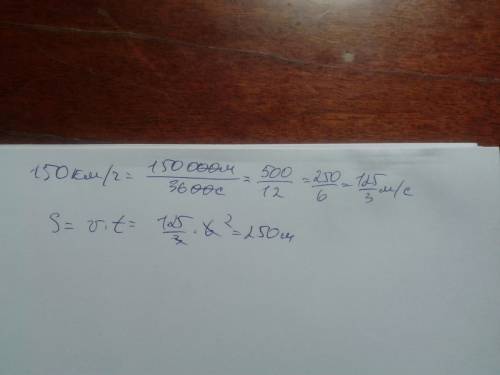 150 км/ч = 150 000м / 3600с = 500/12 = 250/6 = 125/3 м/с
S = v · t = 125/3 · 6 2 = 250 м